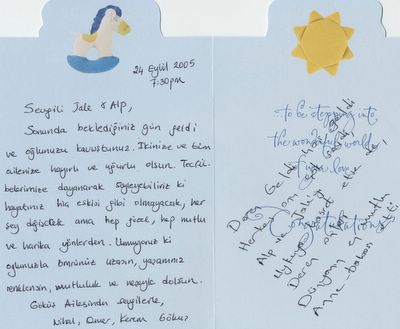 24 Eylül 2005
7:30pm
Sevgili Jale & Alp,
Sonunda beklediğiniz gün geldi
ve oğlunuza kavuştunuz. İkinize ve tüm
ailenize hayırlı ve uğurlu olsun. Tecrü-
belerimize dayanarak söyleyebiliriz ki
hayatınız hiç eskisi gibi olmayacak, her
şey değişecek ama hep güzel, hep mutlu
ve harika yönlerden. Umuyoruz ki
oğlunuzla ömrünüz uzasın, yaşamınız
renklensin, mutluluk ve neşeyle dolsun.
Göküş Ailesinden sevgilerle,
Nihal, Ömer, Kerem
to be stepping into
the wonderful world
of new love
Congratulations
Deren Geldi hoş geldi
Herkes onu
Alp ve Jale'yi
Uykuya hasret etti de,
Deren oldu
Dünyanın en mutlu
Anne babası